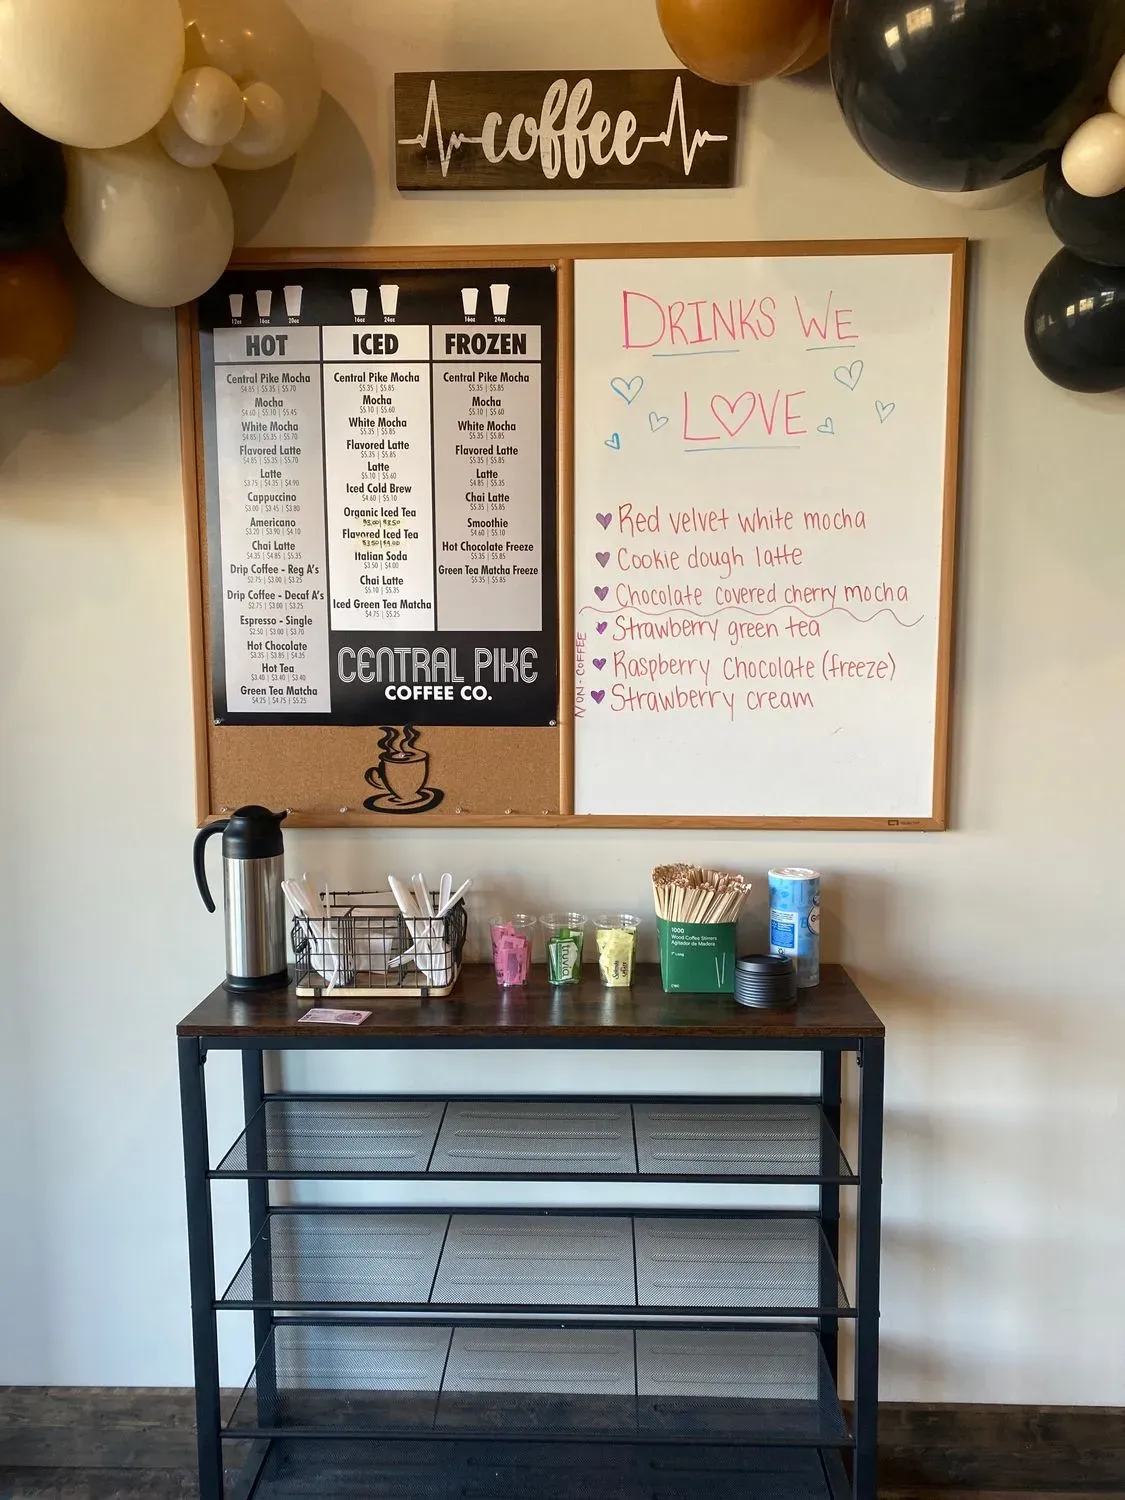 coffee
12oz 16oz 20oz
HOT
Central Pike Mocha
$4.85 | $5.35 | $5.70
Mocha
$4.60 | $5.10 | $5.45
White Mocha
$4.85 | $5.35 | $5.70
Flavored Latte
$4.85 | $5.35 | $5.70
Latte
$3.75 | $4.35 | $4.90
Cappuccino
$3.00 | $3.45 | $3.80
Americano
$3.20 | $3.90 | $4.10
Chai Latte
$4.35 | $4.85 | $5.35
Drip Coffee - Reg A's
$2.75 | $3.00 | $3.25
Drip Coffee - Decaf A's
$2.75 | $3.00 | $3.25
Espresso - Single
$2.50 | $3.00 | $3.70
Hot Chocolate
$3.35 | $3.85 | $4.35
Hot Tea
$3.40 | $3.40 | $3.40
Green Tea Matcha
$4.25 | $4.75 | $5.25
16oz 24oz
ICED
Central Pike Mocha
$5.35 | $5.85
Mocha
$5.10 | $5.60
White Mocha
$5.35 | $5.85
Flavored Latte
$5.35 | $5.85
Latte
$5.10 | $5.60
Iced Cold Brew
$4.60 | $5.10
Organic Iced Tea
$3.00 | $3.50
Flavored Iced Tea
$3.50 | $4.00
Italian Soda
$3.50 | $4.00
Chai Latte
$5.10 | $5.35
Iced Green Tea Matcha
$4.75 | $5.25
16oz 24oz
FROZEN
Central Pike Mocha
$5.35 | $5.85
Mocha
$5.10 | $5.60
White Mocha
$5.35 | $5.85
Flavored Latte
$5.35 | $5.85
Latte
$4.85 | $5.35
Chai Latte
$5.35 | $5.85
Smoothie
$4.60 | $5.10
Hot Chocolate Freeze
$5.35 | $5.85
Green Tea Matcha Freeze
$5.35 | $5.85
CENTRAL PIKE
COFFEE CO.
DRINKS WE
LOVE
Red velvet white mocha
Cookie dough latte
Chocolate covered cherry mocha
NON-COFFEE
Strawberry green tea
Raspberry Chocolate (freeze)
Strawberry cream
truvia
1000
Wood Coffee Stirrers
Agitador de Madera
7" Long